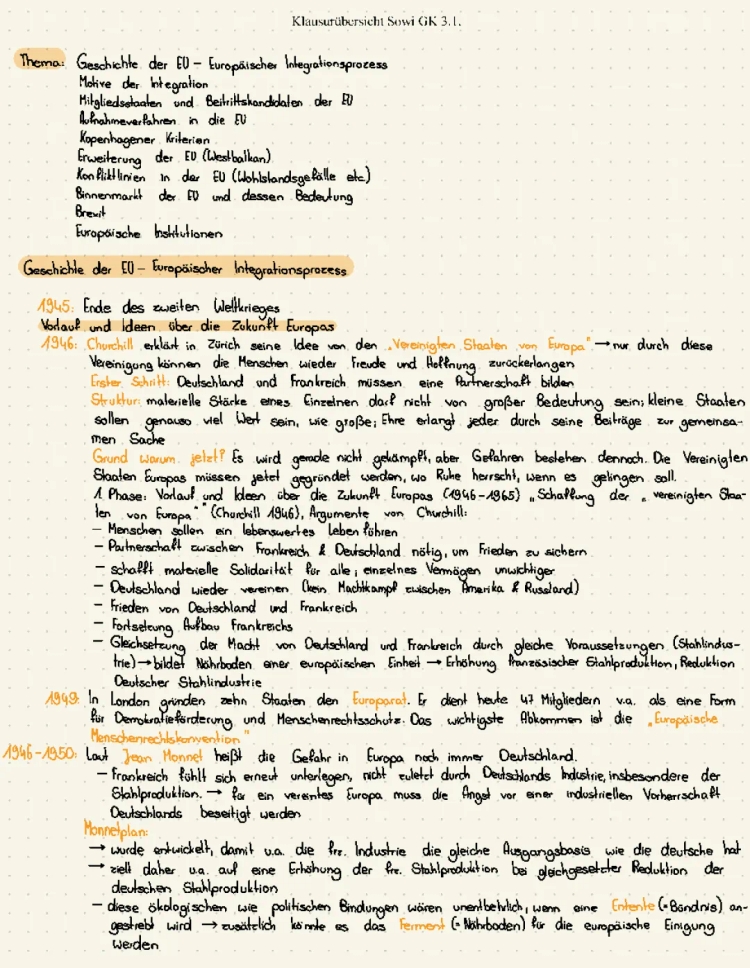 Klausurübersicht Sowi GK 3.1.
Thema: Geschichte der EU – Europäischer Integrationsprozess
Motive der Integration
Mitgliedsstaaten und Beitrittskandidaten der EU
Aufnahmeverfahren in die EU
Kopenhagener Kriterien
Erweiterung der EU (Westbalkan)
Konfliktlinien in der EU (Wohlstandsgefälle etc)
Binnenmarkt der EU und dessen Bedeutung
Brexit
Europäische Institutionen
Geschichte der EU – Europäischer Integrationsprozess
1945: Ende des zweiten Weltkrieges
Vorlauf und Ideen über die Zukunft Europas
1946: Churchill erklärt in Zürich seine Idee von den „Vereinigten Staaten von Europa" → nur durch diese
Vereinigung können die Menschen wieder Freude und Hoffnung zurückerlangen
Erster Schritt: Deutschland und Frankreich müssen eine Partnerschaft bilden
Struktur: materielle Stärke eines Einzelnen darf nicht von großer Bedeutung sein; kleine Staaten
sollen genauso viel Wert sein, wie große; Ehre erlangt jeder durch seine Beiträge zur gemeinsa-
men Sache
Grund warum jetzt? Es wird gerade nicht gekämpft, aber Gefahren bestehen dennoch. Die Vereinigten
Staaten Europas müssen jetzt gegründet werden, wo Ruhe herrscht, wenn es gelingen soll.
1. Phase: Vorlauf und Ideen über die Zukunft Europas (1946-1965) „Schaffung der „vereinigten Staa-
ten von Europa"" (Churchill 1946), Argumente von Churchill:
– Menschen sollen ein lebenswertes Leben führen
– Partnerschaft zwischen Frankreich & Deutschland nötig, um Frieden zu sichern
– schafft materielle Solidarität für alle; einzelnes Vermögen unwichtiger
– Deutschland wieder vereinen (kein Machtkampf zwischen Amerika & Russland)
– Frieden von Deutschland und Frankreich
– Fortsetzung Aufbau Frankreichs
– Gleichsetzung der Macht von Deutschland und Frankreich durch gleiche Voraussetzungen (Stahlindus-
trie) → bildet Nährboden einer europäischen Einheit → Erhöhung französischer Stahlproduktion, Reduktion
Deutscher Stahlindustrie
1949: In London gründen zehn Staaten den Europarat. Er dient heute 47 Mitgliedern v.a. als eine Form
für Demokratieförderung und Menschenrechtsschutz. Das wichtigste Abkommen ist die „Europäische
Menschenrechtskonvention"
1946-1950: Laut Jean Monnet heißt die Gefahr in Europa noch immer Deutschland.
– Frankreich fühlt sich erneut unterlegen, nicht zuletzt durch Deutschlands Industrie, insbesondere der
Stahlproduktion. → für ein vereintes Europa muss die Angst vor einer industriellen Vorherrschaft
Deutschlands beseitigt werden
Monnetplan:
→ wurde entwickelt, damit u.a. die frz. Industrie die gleiche Ausgangsbasis wie die deutsche hat
→ zielt daher u.a. auf eine Erhöhung der frz. Stahlproduktion bei gleichgesetzter Reduktion der
deutschen Stahlproduktion
– diese ökologischen wie politischen Bindungen wären unentbehrlich, wenn eine Entente (=Bündnis) an-
gestrebt wird → zusätzlich könnte es das Ferment (=Nährboden) für die europäische Einigung
werden